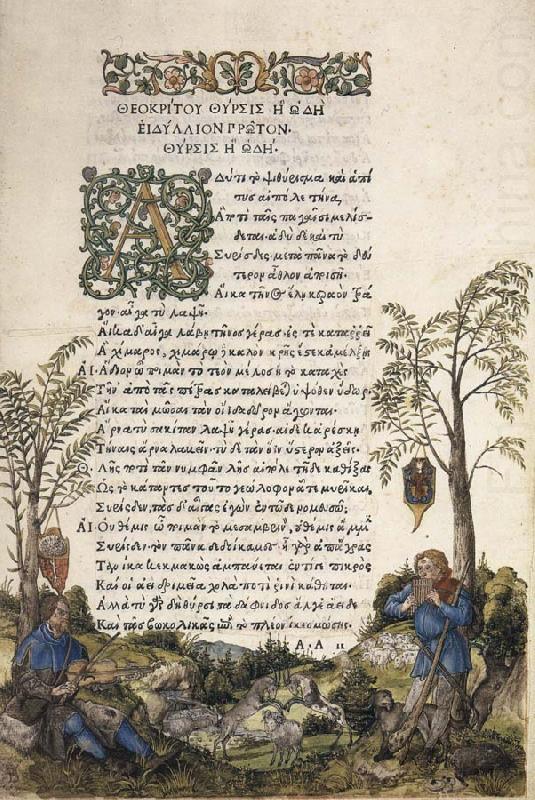 ΘΕΟΚΡΙΤΟΥ ΘΥΡΣΙΣ Ἢ ὨΔΗ
ἘΙΔΥΛΛΙΟΝ ΠΡΩΤΟΝ.
ΘΥΡΣΙΣ Ἢ ὨΔΗ.
Αδύ τι τὸ ψιθύρισμα καὶ ἁ πί
τυς αἰπόλε τήνα,
Ἁ ποτὶ ταῖς παγαῖσι μελίσ-
δεται. ἁδὺ δὲ καὶ τὺ
Συρίσδες. μετὰ πᾶνα τὸ δεύ
τερον ἆθλον ἀποισῇ.
Αἴκα τῆνος ἕλῃ κεραὸν τρά
γον αἶγα τὺ λαψῇ.
Αἴκα δ' αἶγα λάβῃ τῆνος γέρας ἐς τὲ καταρρεῖ
Ἁ χίμαρος, χιμάρῳ καλὸν κρῆς ἔστε κ' ἀμέλξῃς
ΑΙ. Ἅδιον ὦ ποιμὰν τὸ τεὸν μέλος ἢ τὸ καταχὲς
Τῆν' ἀπὸ τᾶς πέτρας καταλείβεται ὑψόθεν ὕδωρ.
Αἴκα ταὶ μῶσαι τὰν οἴιδα δῶρον ἄγωνται.
Ἄρνα τὺ σακίταν λαψῇ γέρας. αἰ δέ κ' ἀρέσκῃ
Τήναις ἄρνα λαβεῖν. τὺ δὲ τὰν ὄιν ὕστερον ἀξεῖς.
Θ. Λῇς ποτὶ τᾶν νυμφᾶν λῇς αἰπόλε τῇδε καθίξας
Ὡς τὸ κάταντες τοῦτο γεώλοφον ᾇτε μυρῖκαι,
Συρίσδεν, τὰς δ' αἶγας ἐγὼν ἐν τῷδε νομευσῶ;
ΑΙ Οὐ θέμις ὦ ποιμὰν τὸ μεσαμβρινὸν, οὐ θέμις ἄμμιν
Συρίσδεν. τὸν πᾶνα δεδοίκαμες ἦ γὰρ ἀπ' ἄγρας
Τανίκα κεκμακὼς ἀμπαύεται ἐντὶ δὲ πικρὸς
Καὶ οἱ ἀεὶ δριμεῖα χολὰ ποτὶ ῥινὶ κάθηται.
Ἀλλὰ τὺ γὰρ δὴ θύρσι τὰ δάφνιδος ἄλγεα εἶδες
Καὶ τᾶς βωκολικᾶς ἐπὶ τὸ πλέον ἵκεο μώσης.
Α.Α ii